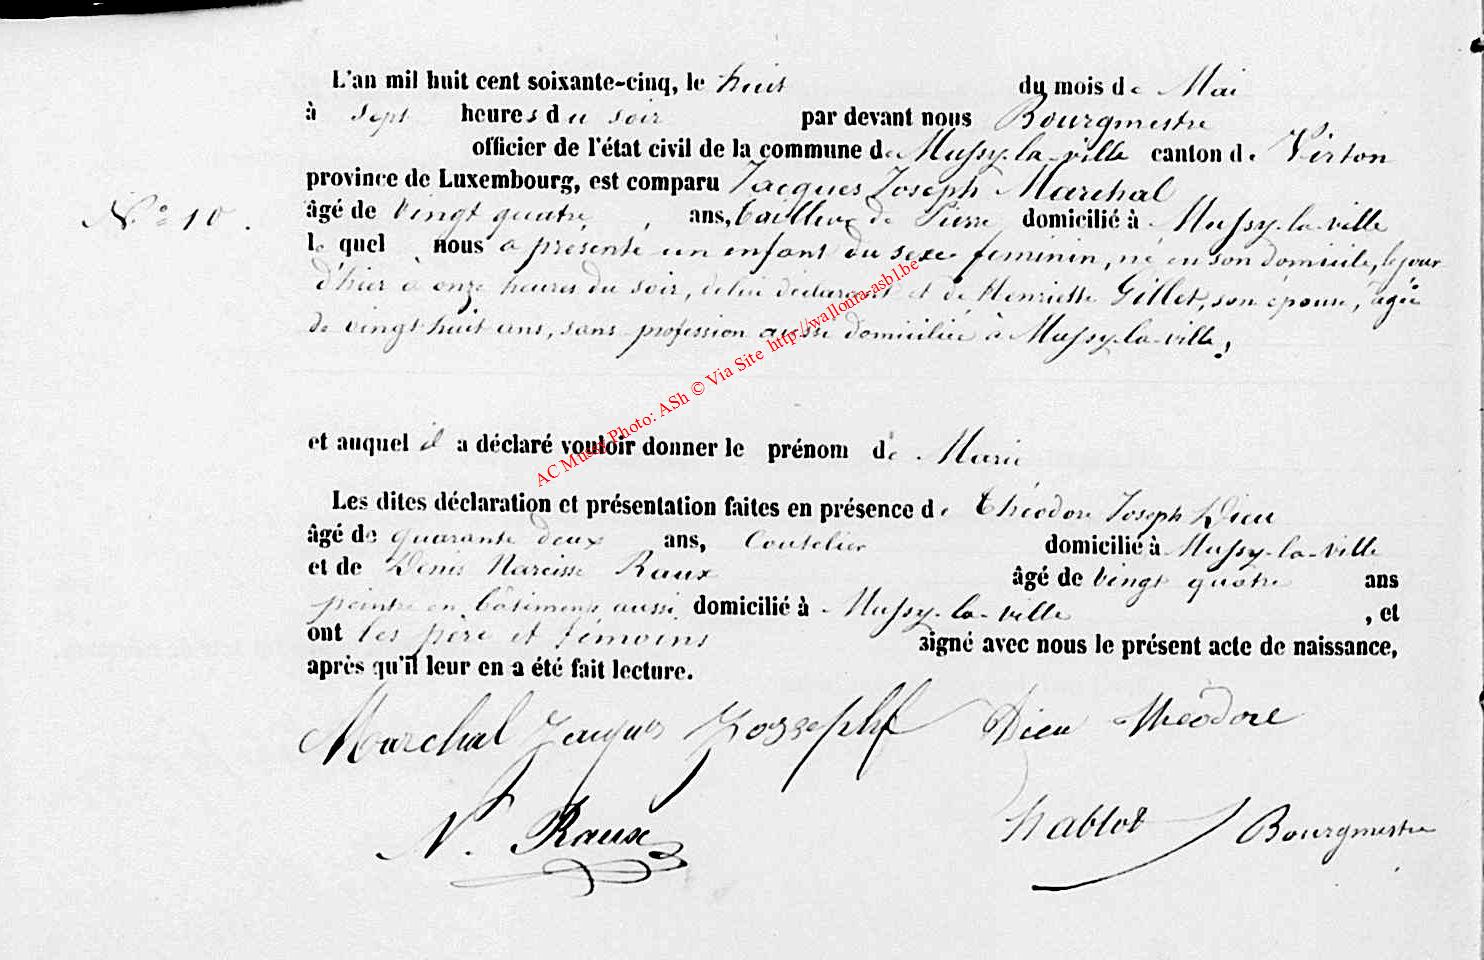 L'an mil huit cent soixante-cinq, le huit du mois de Mai
à sept heures du soir par devant nous Bourgmestre
officier de l'état civil de la commune de Mussy-la-ville canton de Virton
province de Luxembourg, est comparu Jacques Joseph Marchal
N.° 10. âgé de vingt quatre ans, tailleur de Pierre domicilié à Mussy-la-ville
le quel nous a présenté un enfant du sexe féminin, né en son domicile, le jour
d'hier à onze heures du soir, de lui déclarant et de Henriette Gillet, son épouse, âgée
de vingt huit ans, sans profession aussi domiciliée à Mussy-la-ville,
AC Mussy Photo: ASh © Via Site http://wallonia-asbl.be
et auquel il a déclaré vouloir donner le prénom de Marie
Les dites déclaration et présentation faites en présence de Théodore Joseph Dieu
âgé de quarante deux ans, Coutelier domicilié à Mussy-la-ville
et de Denis Narcisse Raux âgé de vingt quatre ans
peintre en bâtiments aussi domicilié à Mussy-la-ville, et
ont les père et témoins signé avec nous le présent acte de naissance,
après qu'il leur en a été fait lecture.
Marchal Jacques Josseph Dieu Théodore
N. Raux Bourgmestre